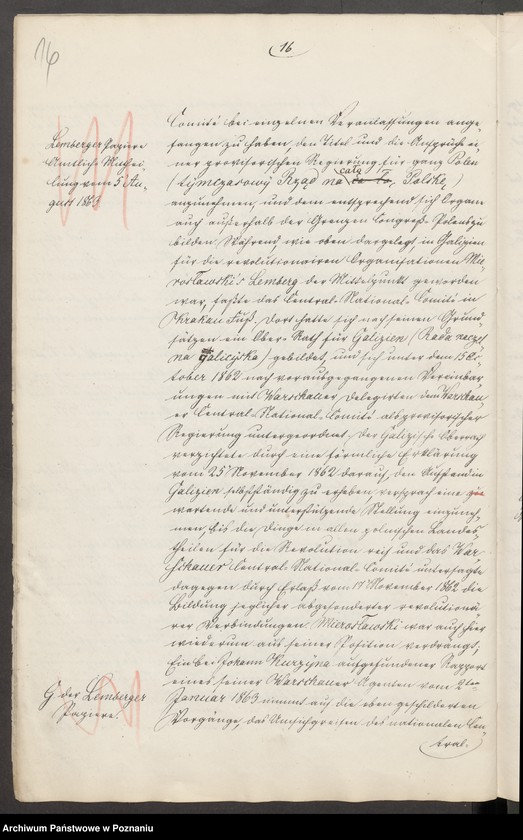 16
16
Lemberger Papiere
Amtliche Mittei-
lung vom 5 Au-
gust 1863
Comité bei einzelnen Veranlassungen ange-
fangen zu haben, den Titel und die Ansprüche ei-
ner provisorischen Regierung für ganz Polen
(tymczasowy Rząd na całą Polskę)
anzunehmen, und dem entsprechend sich Organe
auch außerhalb der Grenzen Congreß-Polens zu
bilden. Während, wie oben dargelegt, in Galizien
für die revolutionairen Organisationen Mie-
rosławski's Lemberg der Mittelpunkt geworden
war, faßte das Central-National-Comité in
Krakau Fuß. Dort hatte sich nach seinen Grund-
sätzen ein Ober-Rath für Galizien (Rada naczel
na Galicyjska) gebildet, und sich unter dem 15 Oc-
tober 1862 nach vorausgegangenen Vereinbar-
ungen mit Warschauer Delegirten dem Warschau-
er Central-National-Comité als provisorischer
Regierung untergeordnet. Der Galizische Oberrath
verzichtete durch eine förmliche Erklärung
vom 25 November 1862 darauf, den Aufstand in
Galizien selbstständig zu erheben, versprach eine
wartende und unterstützende Stellung einzuneh-
men, bis die Dinge in allen polnischen Landes-
theilen für die Revolution reif und das War-
schauer Central-National-Comité untersagte
dagegen durch Erlaß vom 17 November 1862 die
Bildung jeglicher abgesonderter revolutionä-
rer Verbindungen. Mierosławski war auch hier
wiederum aus seiner Position verdrängt,
Ein bei Johann Kurzyna aufgefundener Rapport
eines seiner Warschauer Agenten vom 2ten
Januar 1863 nimmt auf die eben geschilderten
Vorgänge, das Umsichgreifen des nationalen Cen-
tral-
G der Lemberger
Papiere.
Archiwum Państwowe w Poznaniu